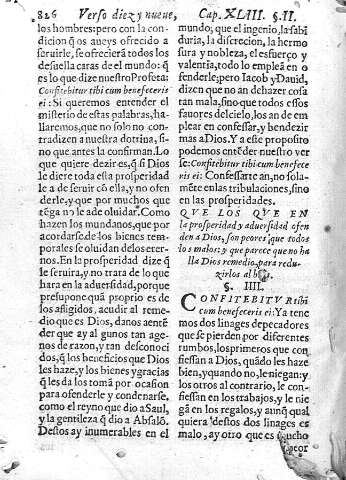 826 Verso diez y nueve, Cap. XLIII. §. II
los hombres: pero con la condi
cion q̃ os aueys ofrecido a
seruirle, se ofrecerà todos los
desuella caras de el mundo: q̃
es lo que dize nuestro Profeta:
Confitebitur tibi cum benefeceris
ei: Si queremos entender el
misterio de estas palabras, ha-
llaremos, que no solo no con-
tradizen a nuestra dotrina, si-
no que antes la confirman. Lo
que quiere dezir es, q̃ si Dios
le diere toda esta prosperidad
le a de seruir cõ ella, y no ofen
derle, y que por muchos que
tẽga no le ade oluidar. Como
hazen los mundanos, que por
acordarse de los bienes tem-
porales se oluidan de los eter-
nos. En la prosperidad dize q̃
le seruira, y no trata de lo que
hara en la aduersidad, porque
presupone quã proprio es de
los afligidos, acudir al reme-
dio que es Dios, danos a entẽ
der que ay algunos tan age-
nos de razon, y tan desconoci
dos, q̃ los beneficios que Dios
les haze, y los bienes y gracias
q̃ les da los tomã por ocasion
para ofenderle y condenarse,
como el reyno que dio a Saul,
y la gentileza q̃ dio a Absalõ.
Destos ay inumerables en el
mundo, que el ingenio, la sabi
duria, la discrecion, la hermo
sura y nobleza, el esfuerço y
valentia, todo lo emplea en o
fenderle; pero Iacob y Dauid,
dizen que no an de hazer cosa
tan mala, sino que todos essos
fauores del cielo, los an de em
plear en confessar, y bendezir
mas a Dios. Y a este proposito
podemos entẽder nuestro ver
so: Confitebitur tibi cum benefeceris
ei: Confessarte an, no sola-
mẽte en las tribulaciones, sino
en las prosperidades.
QVE LOS QVE EN
la prosperidad y aduersidad ofen
den a Dios, son peores que todos
los malos: y que parece que no ha
lla Dios remedio, para redu-
zirlos al
§. IIII.
CONFITEBITVR tibi
cum benefeceris ei: Ya tene
mos dos linages de pecadores
que se pierden por diferentes
rumbos, los primeros que con
fiessan a Dios, quãdo les haze
bien, y quando no, le niegan: y
los otros al contrario, le con-
fiessan en los trabajos, y le nie
gã en los regalos, y aunq̃ qual
quiera destos dos linages es
malo, ay otro que es mucho
peor